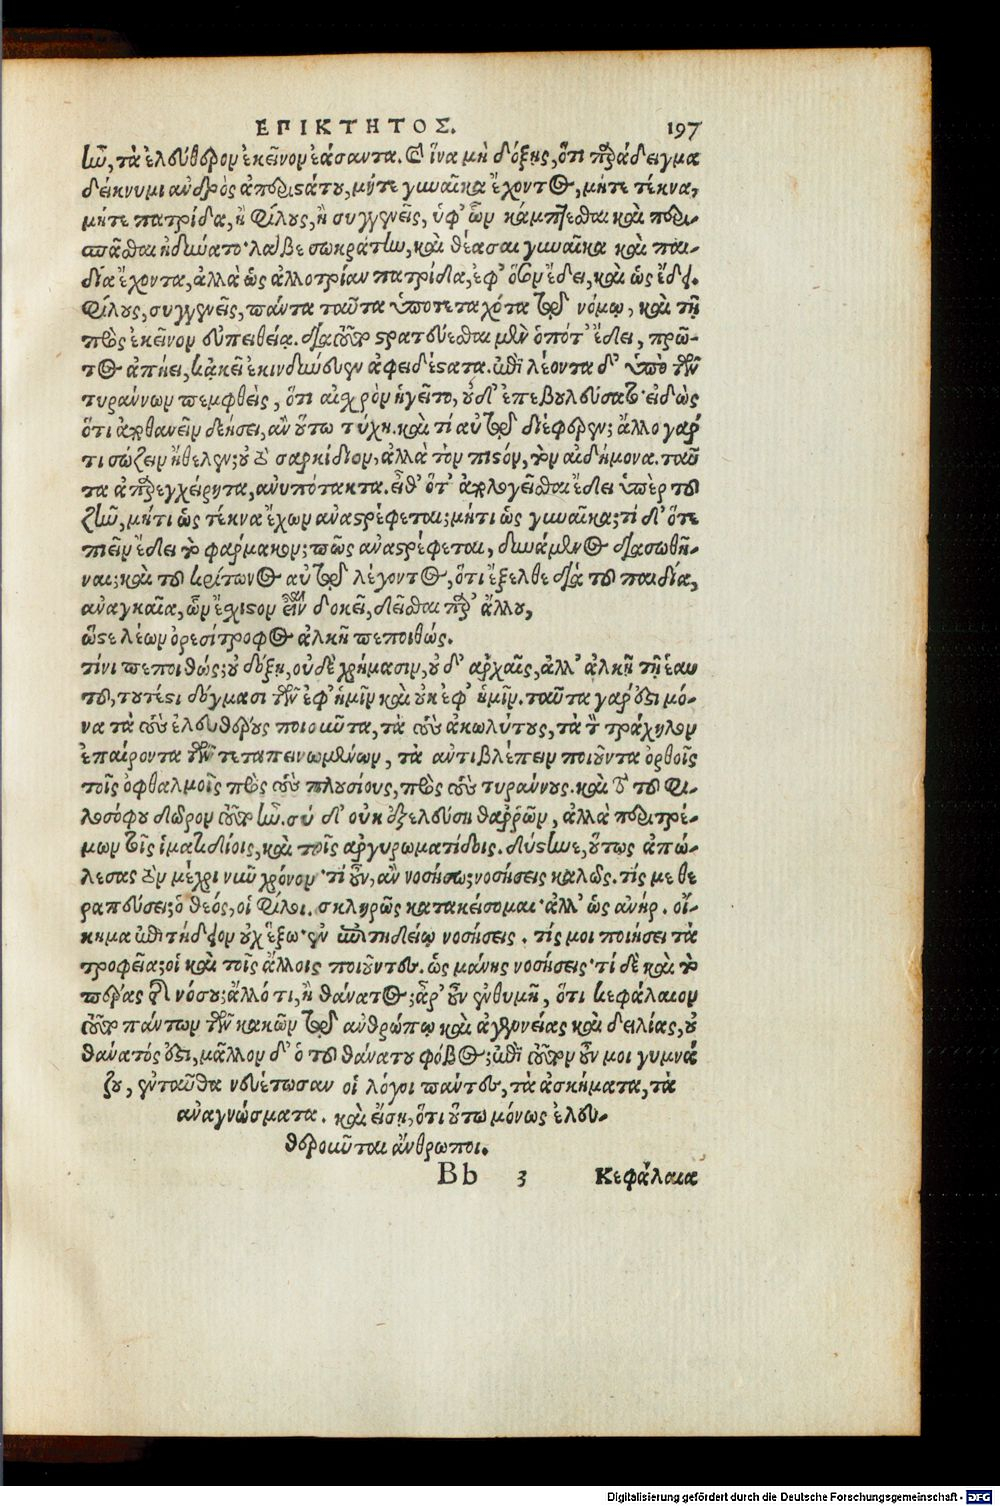 ΕΠΙΚΤΗΤΟΣ. 197
ἦν, τὰ ἐλεύθερον ἐκεῖνον ἐάσαντα. καὶ ἵνα μὴ δόξῃς, ὅτι παράδειγμα
δείκνυμι ἀνδρὸς ἀπεριστάτου, μήτε γυναῖκα ἔχοντος, μήτε τέκνα,
μήτε πατρίδα, ἢ φίλους, ἢ συγγενεῖς, ὑφ' ὧν κάμπτεσθαι καὶ περι-
σπᾶσθαι ἠδύνατο· λάβε σωκράτην, καὶ θέασαι γυναῖκα καὶ παι-
δία ἔχοντα, ἀλλὰ ὡς ἀλλοτρίαν πατρίδα, ἐφ' ὅσον ἔδει, καὶ ὡς ἔδει.
φίλους, συγγενεῖς, πάντα ταῦτα ὑποτεταχότα τῷ νόμῳ, καὶ τῇ
πρὸς ἐκεῖνον εὐπειθείᾳ. διὰ τοῦτο στρατεύεσθαι μὲν ὁπότ' ἔδει, πρῶ-
τος ἀπῄει, κἀκεῖ ἐκινδύνευεν ἀφειδέστατα. ἐπὶ λέοντα δ' ὑπὸ τῶν
τυράννων πεμφθεὶς, ὅτι αἰσχρὸν ἡγεῖτο, οὐδ' ἐπεβουλεύσατο· εἰδὼς
ὅτι ἀποθανεῖν δεήσει, ἂν οὕτω τύχῃ. καὶ τί αὐτῷ διέφερεν; ἄλλο γάρ
τι σώζειν ἤθελεν; οὐ τὸ σαρκίδιον, ἀλλὰ τὸν πιστόν, τὸν αἰδήμονα. ταῦ
τα ἀπαρεγχείρητα, ἀνυπότακτα. εἶθ' ὅτ' ἀπολογεῖσθαι ἔδει ὑπὲρ τοῦ
ζῆν, μήτι ὡς τέκνα ἔχων ἀναστρέφεται; μήτι ὡς γυναῖκα; τί δ' ὅτε
πιεῖν ἔδει τὸ φάρμακον; πῶς ἀναστρέφεται, δυνάμενος διασωθῆ-
ναι; καὶ τοῦ κρίτωνος αὐτῷ λέγοντος, ὅτι ἔξελθε διὰ τὰ παιδία,
ἀναγκαῖα, ὧν ἔχιστον εἶναι δοκεῖ, δεῖσθαι παρ' ἄλλου,
ὥστε λέων ὀρεσίτροφος ἀλκῇ πεποιθώς.
τίνι πεποιθώς; οὐ δόξῃ, οὐδὲ χρήμασιν, οὐδ' ἀρχαῖς, ἀλλ' ἀλκῇ τῇ ἑαυ
τοῦ, τουτέστι δόγμασι τῶν ἐφ' ἡμῖν καὶ οὐκ ἐφ' ἡμῖν. ταῦτα γάρ ἐστι μό-
να τὰ τοὺς ἐλευθέρους ποιοῦντα, τὰ τοὺς ἀκωλύτους, τὰ τὸν τράχηλον
ἐπαίροντα τῶν τεταπεινωμένων, τὰ ἀντιβλέπειν ποιοῦντα ὀρθοῖς
τοῖς ὀφθαλμοῖς πρὸς τοὺς πλουσίους, πρὸς τοὺς τυράννους. καὶ τὸ τοῦ φι-
λοσόφου δῶρον τοῦτο ἦν. σύ δ' οὐκ ἐξελεύσῃ θαῤῥῶν, ἀλλὰ περιτρέ-
μων τοῖς ἱματιδίοις, καὶ τοῖς ἀργυρωματίοις. δύστηνε, οὕτως ἀπώ-
λεσας τὸν μέχρι νῦν χρόνον· τί οὖν, ἂν νοσήσω; νοσήσεις καλῶς. τίς με θε
ραπεύσει; ὁ θεός, οἱ φίλοι. σκληρῶς κατακείσομαι· ἀλλ' ὡς ἀνήρ. οἴ-
κημα ἐπιτήδειον οὐχ ἕξω· ἐν ἐπιτηδείῳ νοσήσεις. τίς μοι ποιήσει τὰ
τροφεῖα; οἱ καὶ τοῖς ἄλλοις ποιοῦντες. ὡς μάνης νοσήσεις· τί δὲ καὶ τὸ
πέρας τῆς νόσου; ἄλλό τι, ἢ θάνατος; ἆρ' οὖν ἐνθυμῇ, ὅτι κεφάλαιον
τοῦτο πάντων τῶν κακῶν τῷ ἀνθρώπῳ καὶ ἀγεννείας καὶ δειλίας, οὐ
θάνατός ἐστι, μᾶλλον δ' ὁ τοῦ θανάτου φόβος; ἐπὶ τοῦτον οὖν μοι γυμνά
ζου, ἐνταῦθα νευέτωσαν οἱ λόγοι πάντες, τὰ ἀσκήματα, τὰ
ἀναγνώσματα. καὶ εἴσῃ, ὅτι οὕτω μόνως ἐλευ-
θεροῦνται ἄνθρωποι.
Bb 3 Κεφάλαια
Digitalisierung gefördert durch die Deutsche Forschungsgemeinschaft - DFG